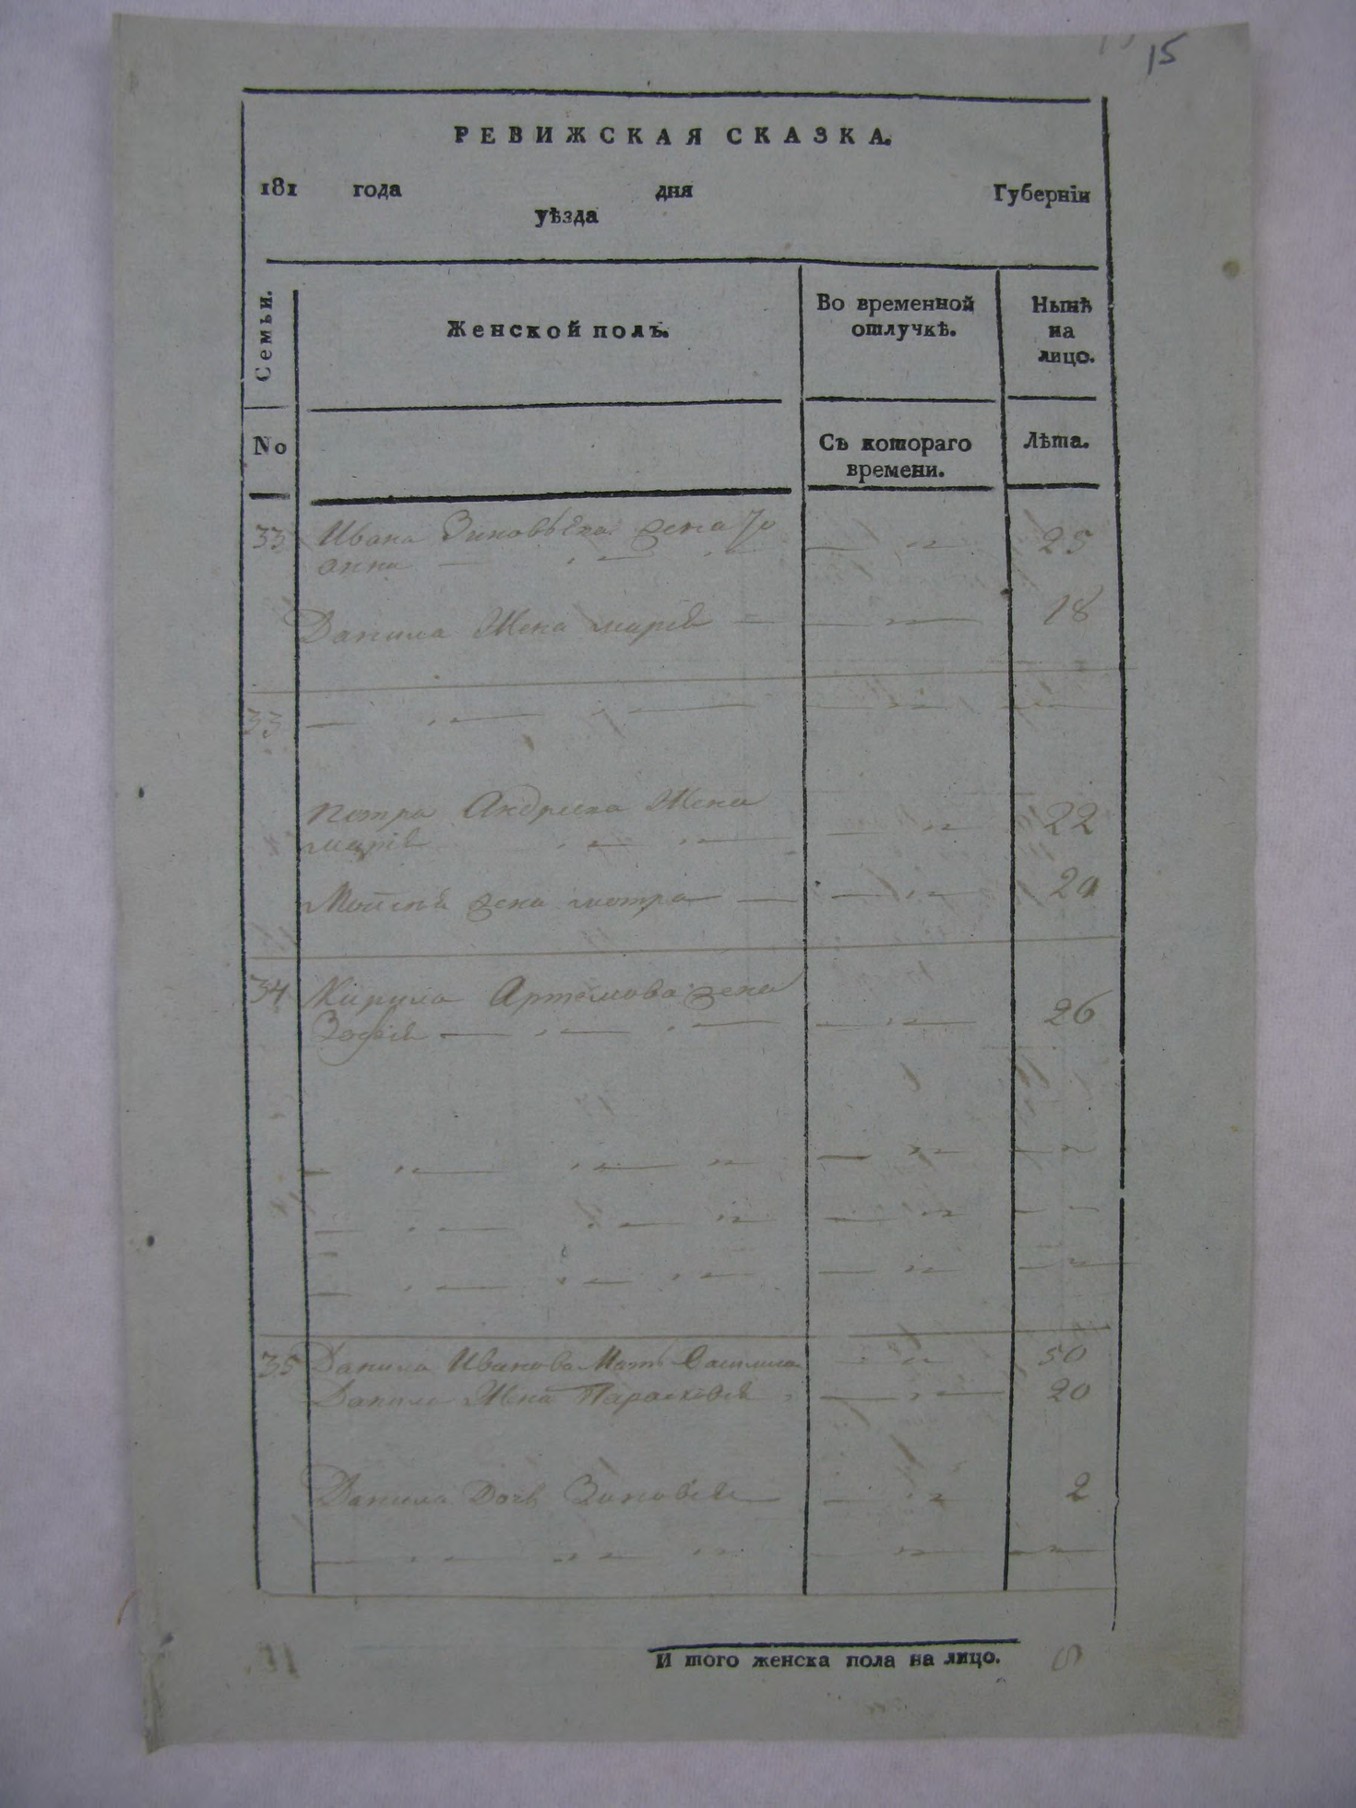 15
РЕВИЖСКАЯ СКАЗКА.
181 года дня Губерніи
уѣзда
Семьи.
Женской полъ.
Во временной отлучкѣ.
Нынѣ на лицо.
No
Съ котораго времени.
Лѣта.
33 Ивана Зиновѣева жена
анна 25
Данила Жена марія 18
33
петра Андреева Жена
марія 22
Мойсея жена мотра 20
34 Кирила Артемова жена
Зофія 26
35 Данила Иванова Мать 50
Данила Жена Параскевія 20
Данила Дочь Зиновія 2
И того женска пола на лицо. 8